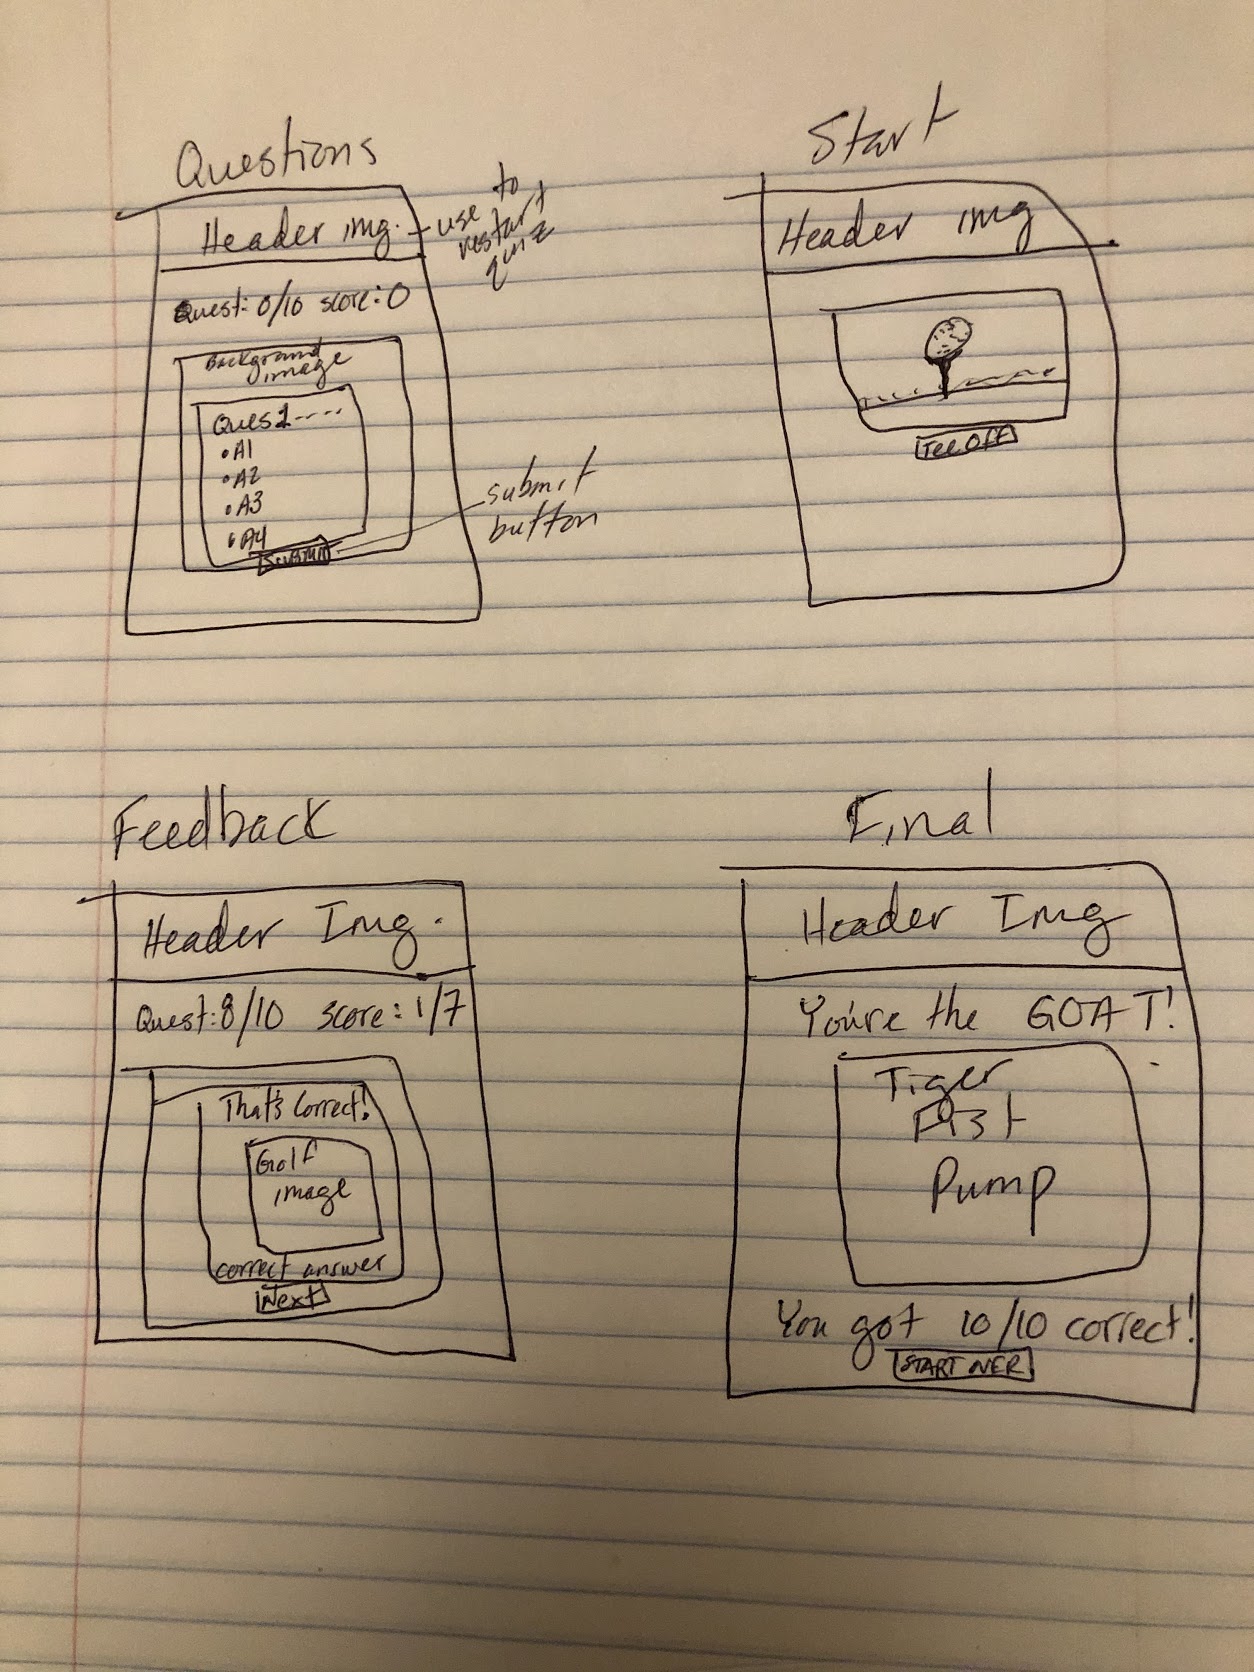 Questions
Header img.
use to
restart
quiz
Quest: 0/10 score: 0
Background
image
Ques 1----
• A1
• A2
• A3
• A4
SUBMIT
submit
button
Start
Header img
Tee Off
Feedback
Header Img.
Quest: 8/10 score: 1/7
That's Correct!
Golf
image
correct answer
Next
Final
Header Img
You're the GOAT!
Tiger
Fist
Pump
You got 10/10 correct!
START OVER